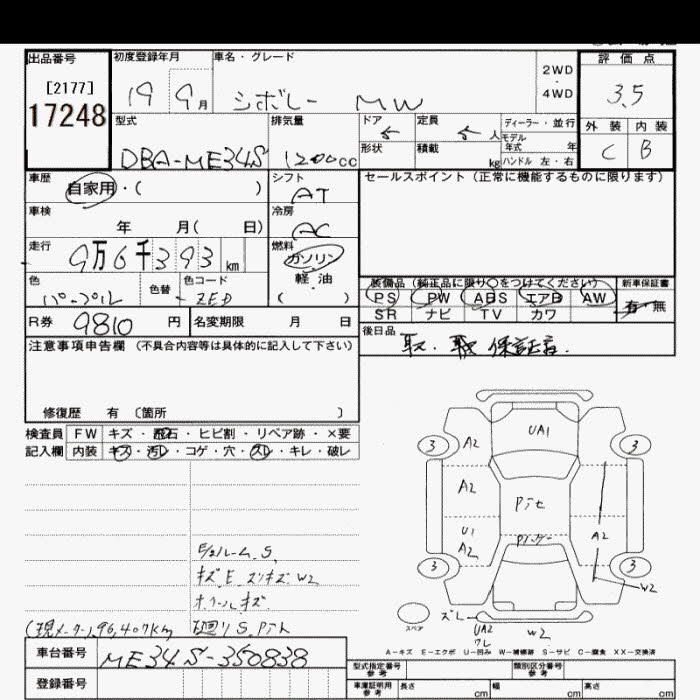 出品番号
[2177]
17248
初度登録年月
19 9月
車名・グレード
シボレー MW
2WD
・
4WD
評価点
3.5
外装 内装
C B
型式
DBA-ME34S
排気量
1200cc
ドア 5
定員 5人
形状
積載 kg
ディーラー・並行
モデル
年式 年
ハンドル 左・右
車歴
自家用・( )
シフト
AT
セールスポイント(正常に機能するものに限ります)
車検
年 月( 日)
冷房
AC
走行
9万6千393km
燃料
ガソリン
軽油
( )
色
パープル
色替
色コード
ZED
装備品(純正品に限り○をつけてください)
PS PW ABS エアB AW
SR ナビ TV カワ
新車保証書
有・無
R券 9810円
名変期限 月 日
後日品
取、取 保証書.
注意事項申告欄(不具合内容等は具体的に記入して下さい)
修復歴 有〔箇所 〕
検査員 FW キズ・飛石・ヒビ割・リペア跡・×要
記入欄 内装 キズ・汚レ・コゲ・穴・スレ・キレ・破レ
UA1
3 A2 3
A2
Pテセ
U1
A2 A2
3 3
W2
スペア
ズレ
UA2 W2
ワレ
E/ルーム S,
キズ E スリキズ W2
ホイールキズ
(現メーター)96,407km 廻り S. Pテセ
A-キズ E-エクボ U-凹み W-補修跡 S-サビ C-腐食 XX-交換済
車台番号 ME34S-350838
登録番号
型式指定番号
参考
類別区分番号
参考
車庫証明用
参考
長さ cm 幅 cm 高さ cm